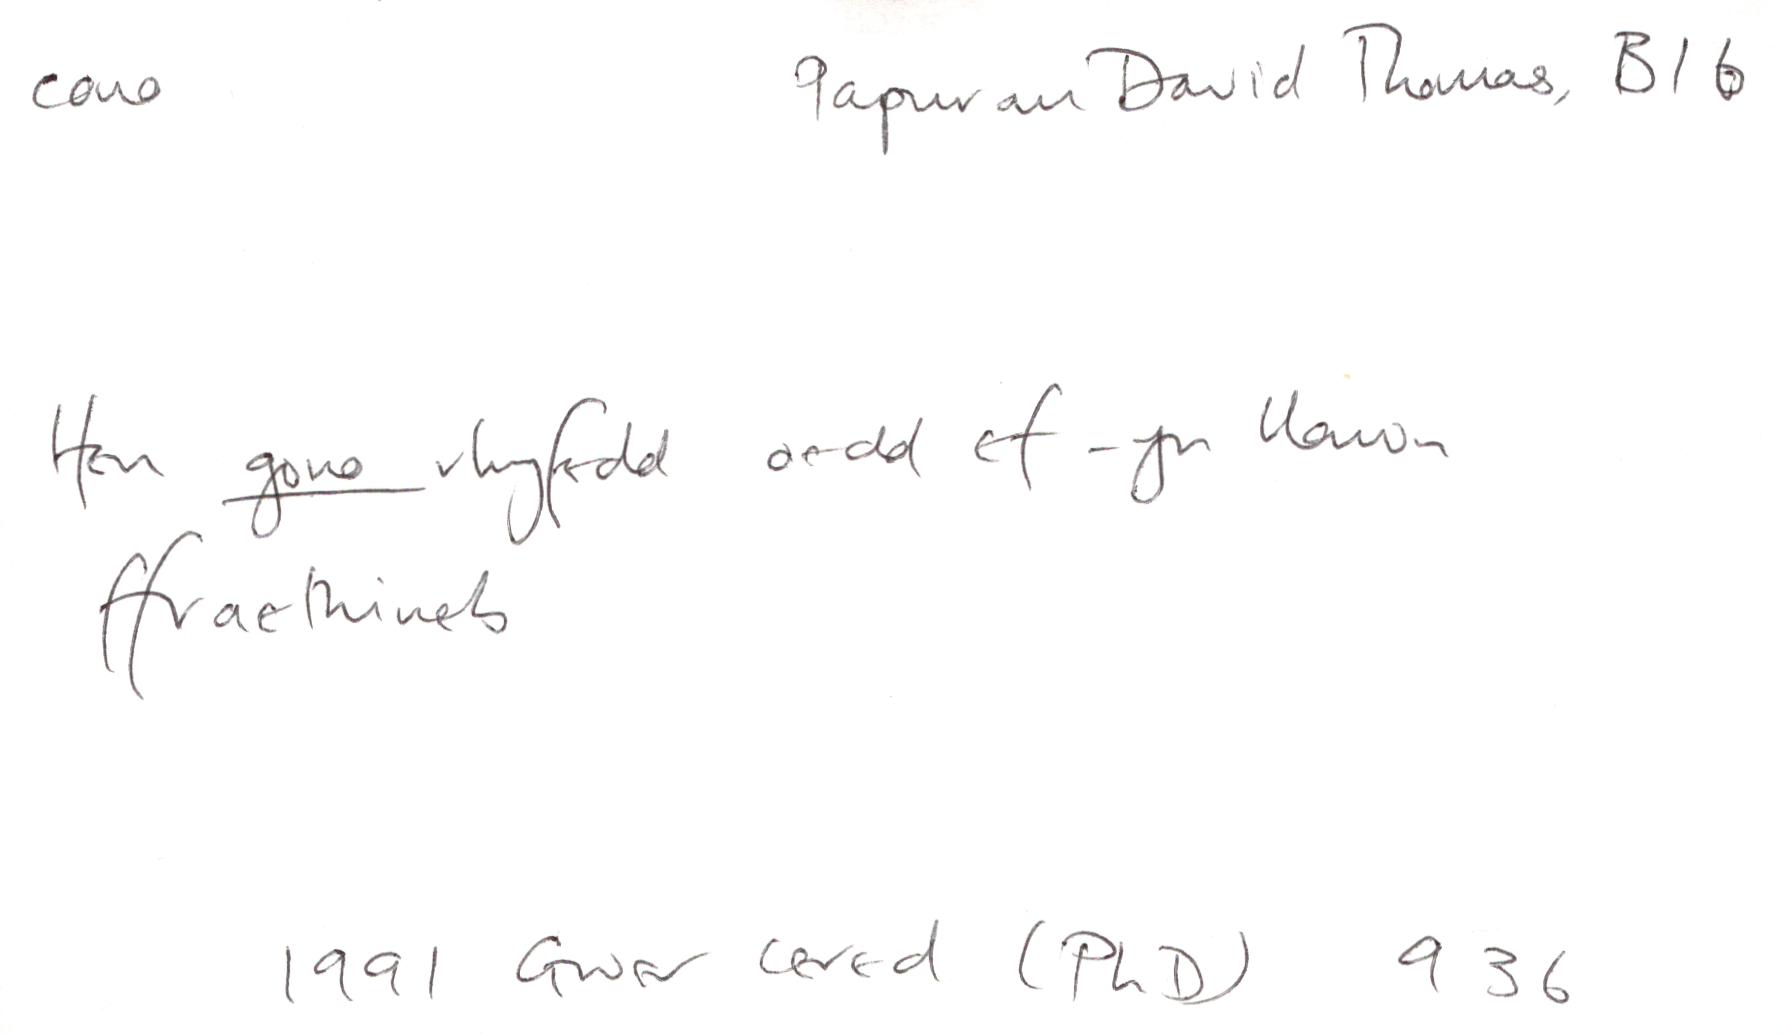 cono
Papurau David Thomas, B16
Hen gono rhyfedd oedd ef - yn llawn
ffraethineb
1991 GWES Cered (PhD) 936